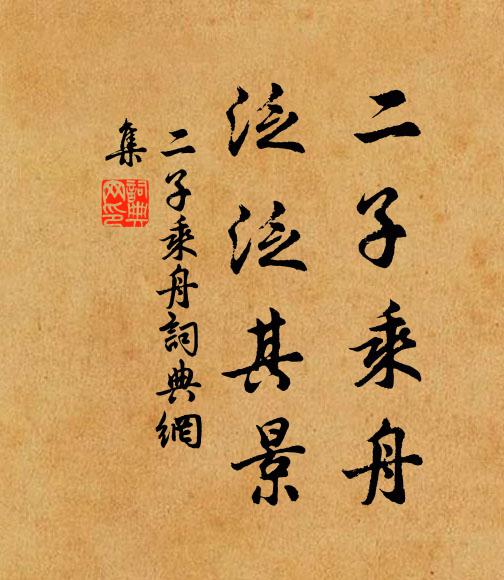 二子乘舟
泛泛其景
二子乘舟詞典網
集
詞典
网印